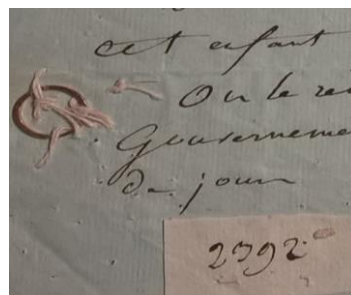 cet enfant
On le
Gouverneme
du jour
2392